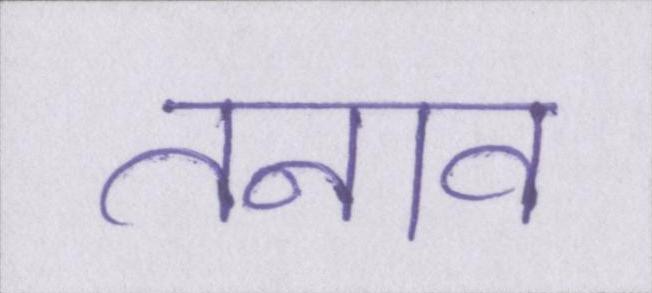 तनाव